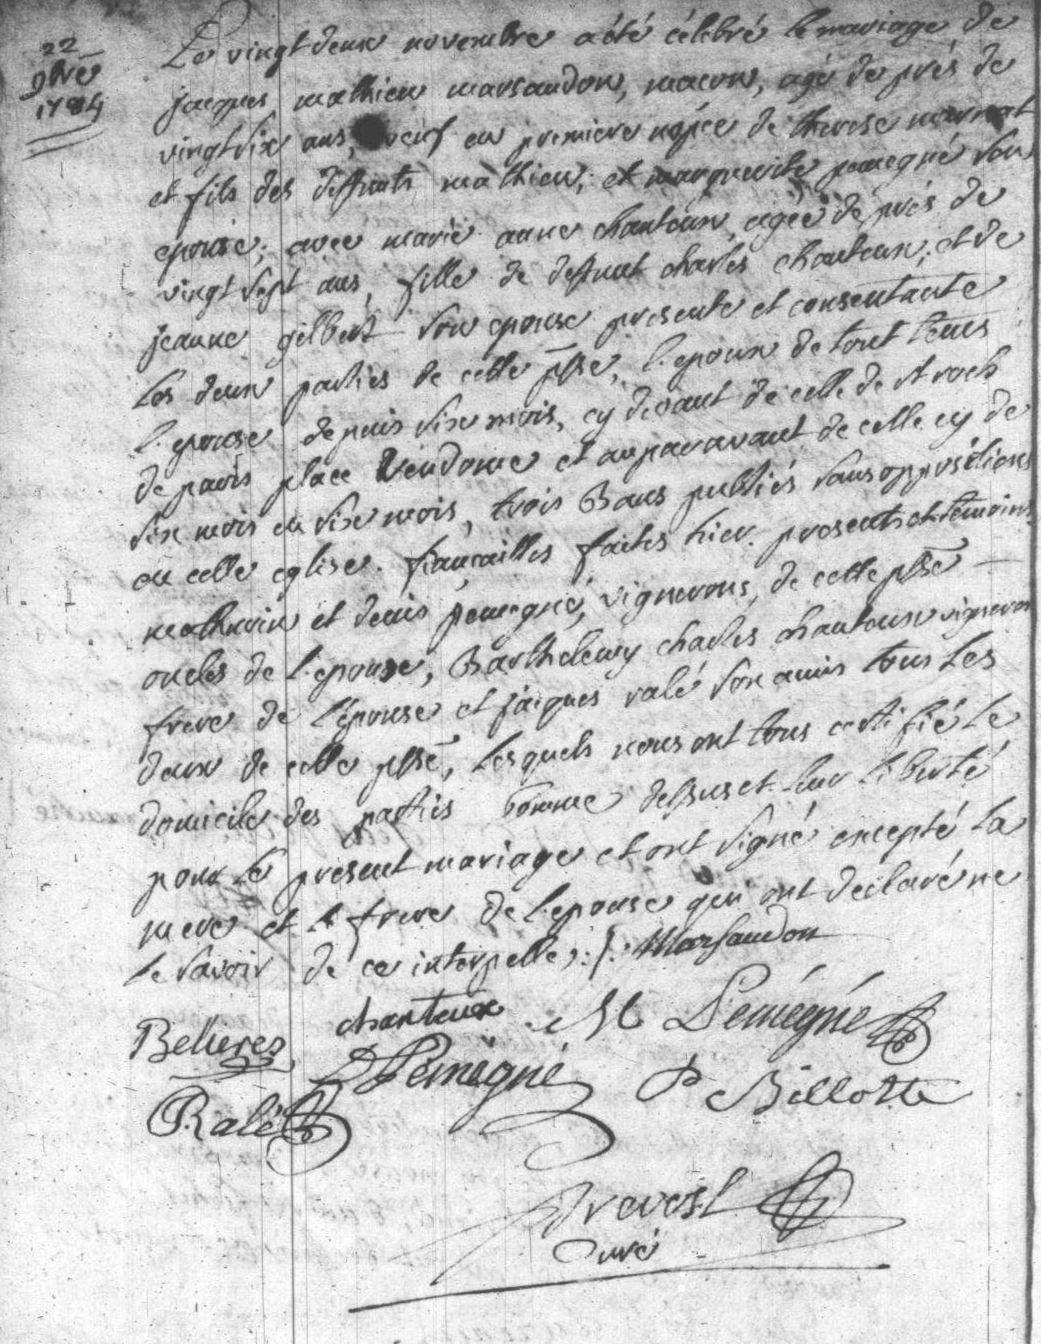 22
9bre
1784
Le vingt deux novembre a été célébré le mariage de
jacques mathieu marsaudon, macon, agé de prés de
vingt six ans, veuf en premiere nopce de therese
et fils des deffunts mathieu, et marguerite pemegné son
epouse; avec marie anne chanteux, agée de prés de
vingt sept ans, fille de deffunt charles chanteux, et de
jeanne gilbert son epouse presente et consentante
les deux parties de cette psse, l'epoux de tout tems
l'epouse depuis six mois, cy devant de celle de st roch
de paris place Vendome et auparavant de celle cy de
six mois en six mois, trois Bans publiés sans oppositions
en cette eglise. fiançailles faites hier. presents et temoins
mathurin et denis pemegné, vignerons, de cette psse
oncles de l'epoux, Barthelemy charles chanteux vigneron
frere de l'épouse et jacques ralé son amis tous les
deux de cette psse, lesquels nous ont tous certifié le
domicile des parties comme dessus et leur liberté
pour le present mariage et ont signé excepté la
mere et le frere de l'epouse qui ont declaré ne
le savoir de ce interpellés. j. Marsaudon
chanteux M Pemégné
Belieres
D Pemegné P Billotte
Ralé
Prevost
Curé